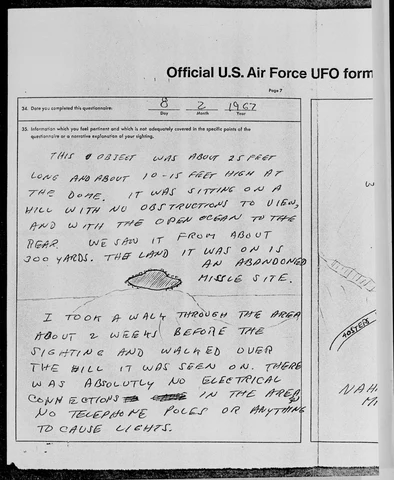 Official U.S. Air Force UFO form
Page 7
34. Date you completed this questionnaire:
8 2 1967
Day Month Year
35. Information which you feel pertinent and which is not adequately covered in the specific points of the
questionnaire or a narrative explanation of your sighting.
THIS OBJECT WAS ABOUT 25 FEET
LONG AND ABOUT 10-15 FEET HIGH AT
THE DOME. IT WAS SITTING ON A
HILL WITH NO OBSTRUCTIONS TO VIEW,
AND WITH THE OPEN OCEAN TO THE
REAR. WE SAW IT FROM ABOUT
300 YARDS. THE LAND IT WAS ON IS
AN ABANDONED
MISSLE SITE.
I TOOK A WALK THROUGH THE AREA
ABOUT 2 WEEKS BEFORE THE
SIGHTING AND WALKED OVER
THE HILL IT WAS SEEN ON. THERE
WAS ABSOLUTLY NO ELECTRICAL
CONNECTIONS IN THE AREA,
NO TELEPHONE POLES OR ANYTHING
TO CAUSE LIGHTS.
10 STEPS
NAH